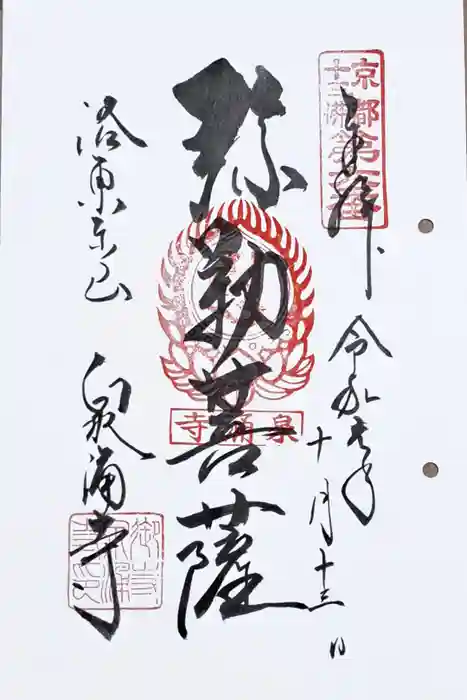 京都
十三佛
第六番
奉拝
令和元年十月十三日
弥勒菩薩
泉涌寺
洛東山
泉涌寺
御寺
泉涌
寺印